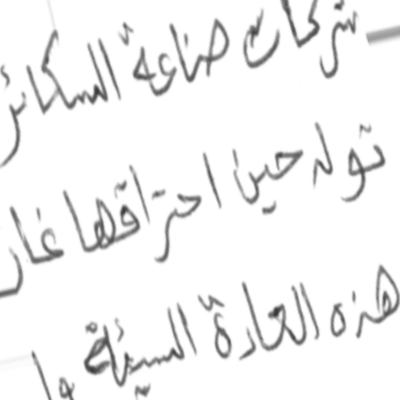 شركات صناعة السكائر
تولد حين احتراقها غاز
هذه العادة السيئة وا